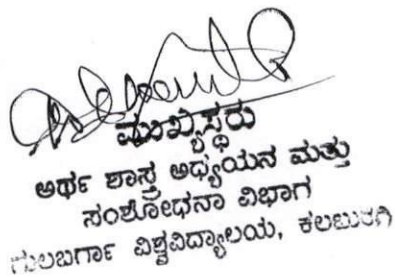 ಮುಖ್ಯಸ್ಥರು
ಅರ್ಥ ಶಾಸ್ತ್ರ ಅಧ್ಯಯನ ಮತ್ತು
ಸಂಶೋಧನಾ ವಿಭಾಗ
ಗುಲಬರ್ಗಾ ವಿಶ್ವವಿದ್ಯಾಲಯ, ಕಲಬುರಗಿ